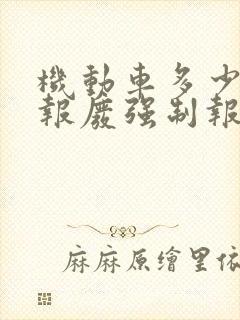 機動車多少
報廢强制報
麻麻原繪里依